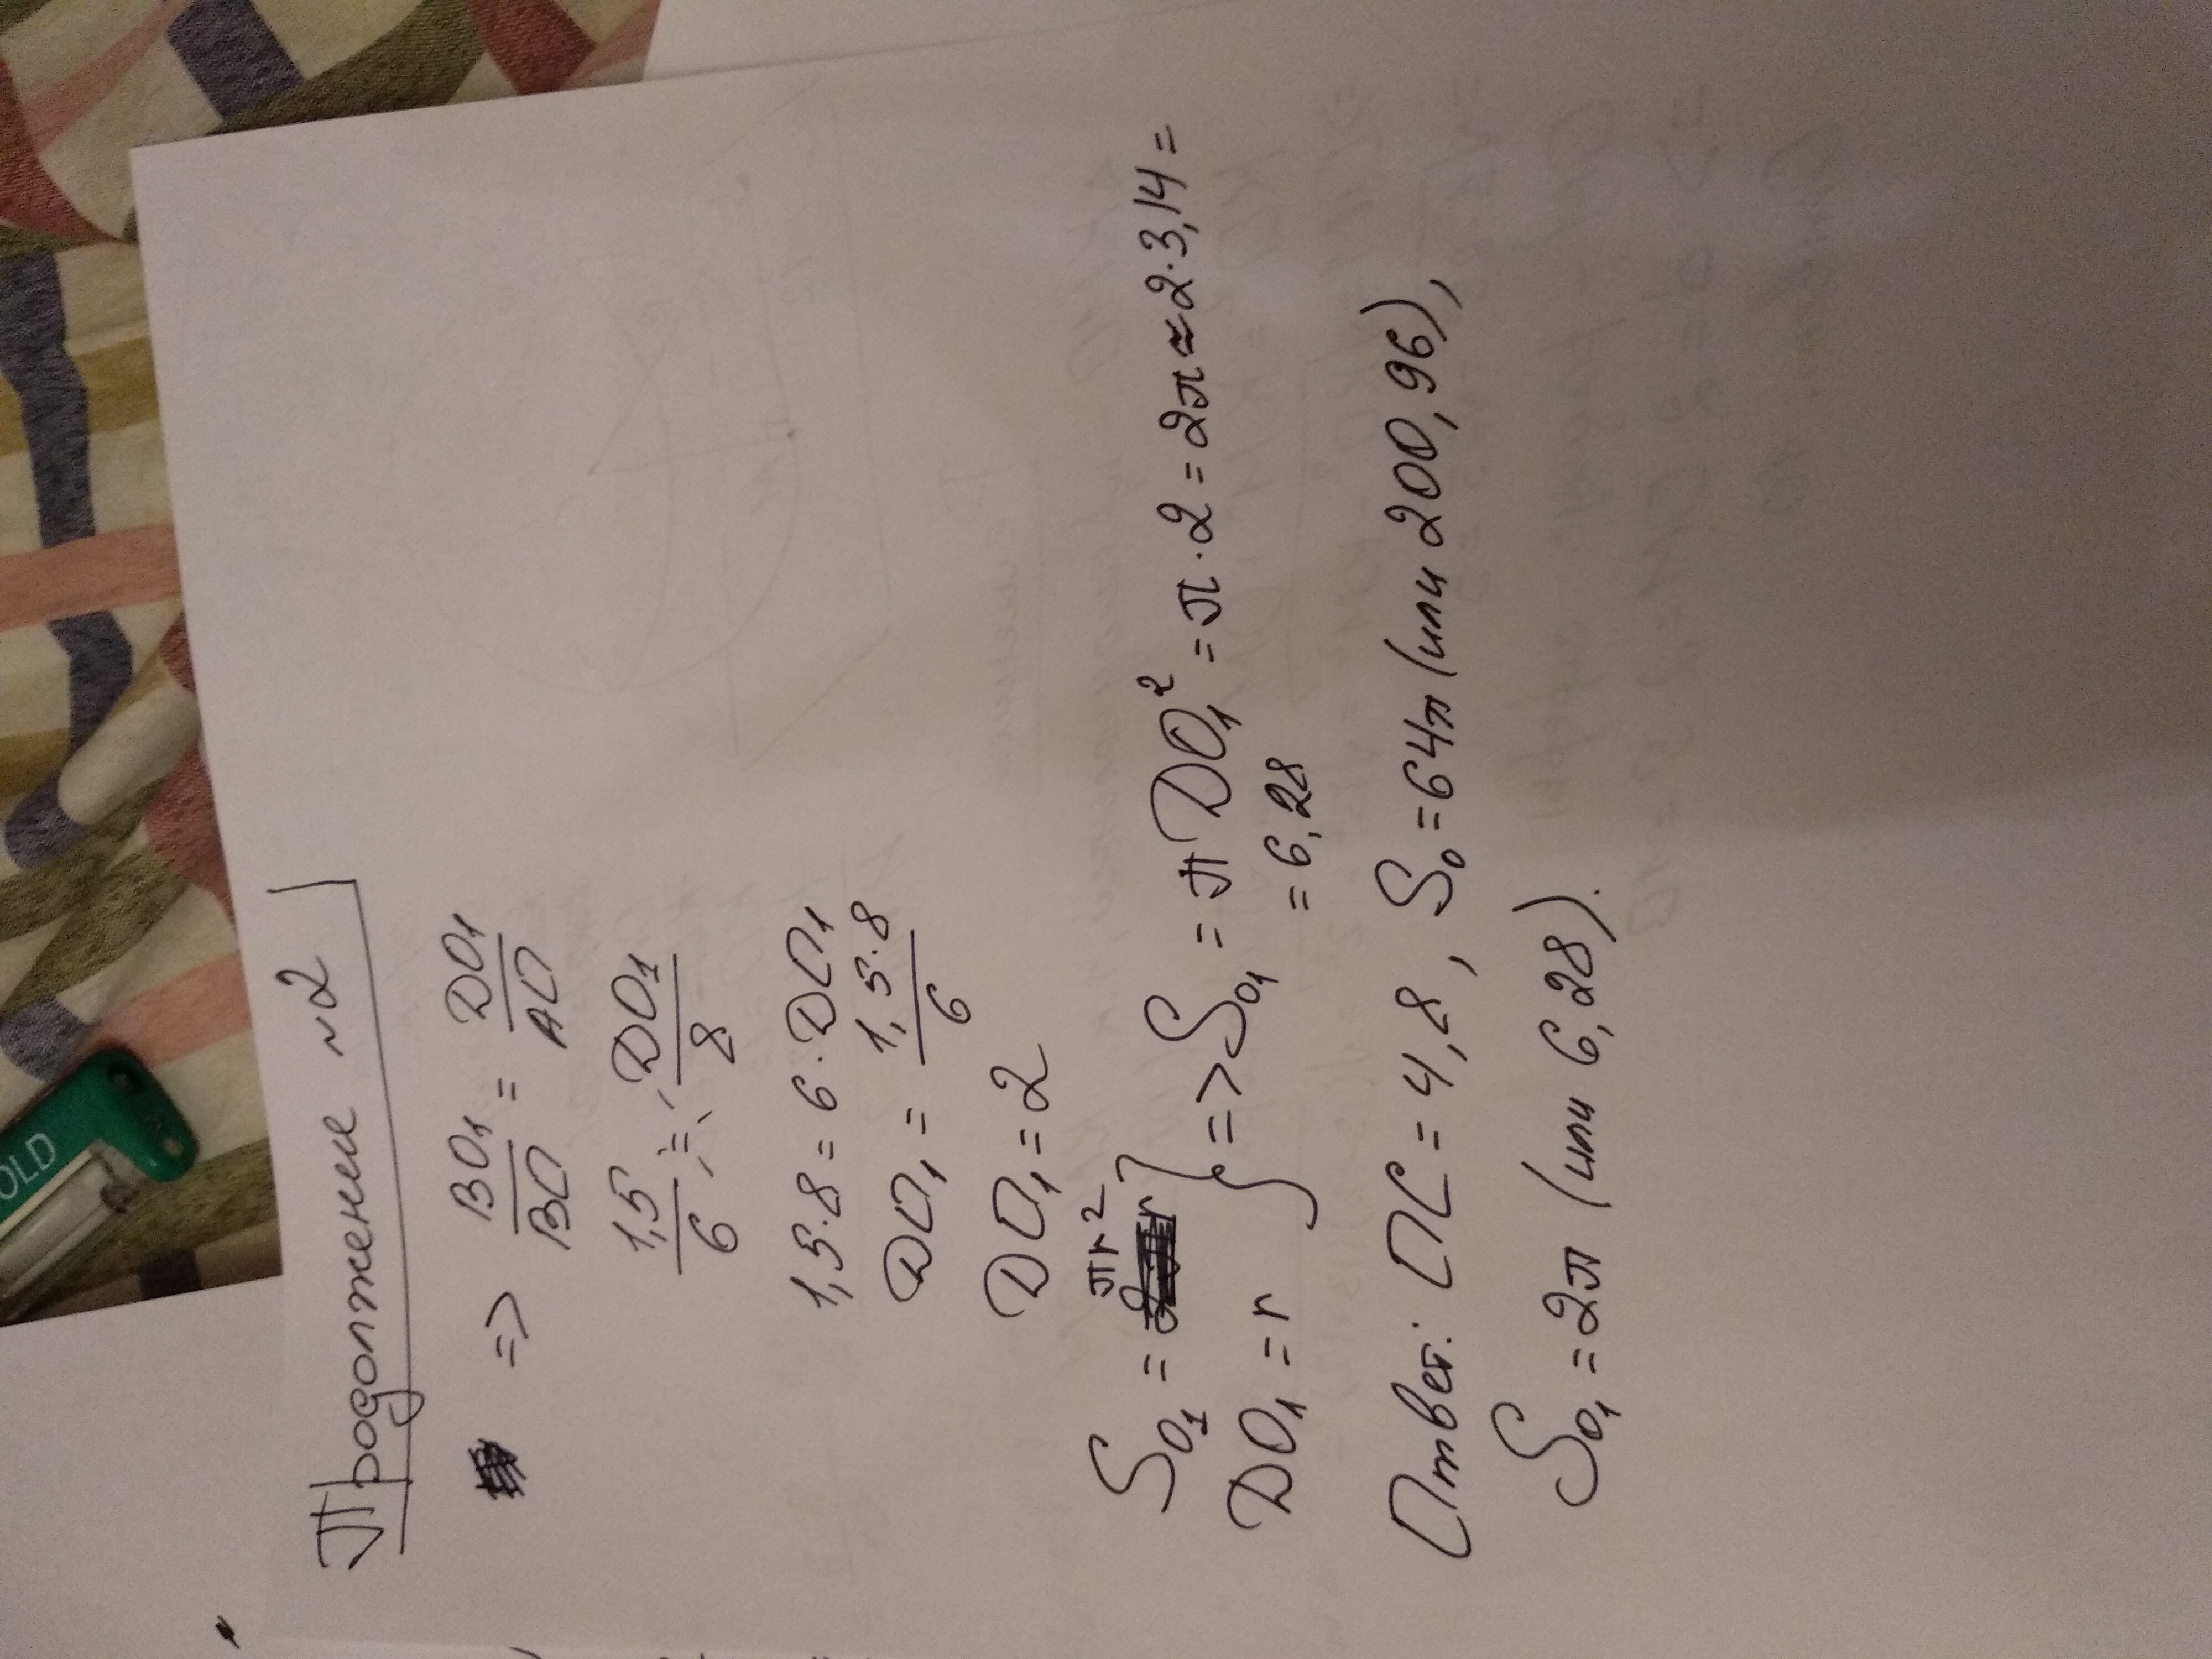 Продолжение №2
=> BO₁/BO = DO₁/AO
1,5/6 = DO₁/8
1,5·8 = 6·DO₁
DO₁ = 1,5·8/6
DO₁ = 2
S_O₁ = πr²
DO₁ = r } => S_O₁ = πDO₁² = π·2 = 2π ≈ 2·3,14 =
= 6,28
Ответ: OC = 4,8, S_O = 64π (или 200,96),
S_O₁ = 2π (или 6,28).
OLD